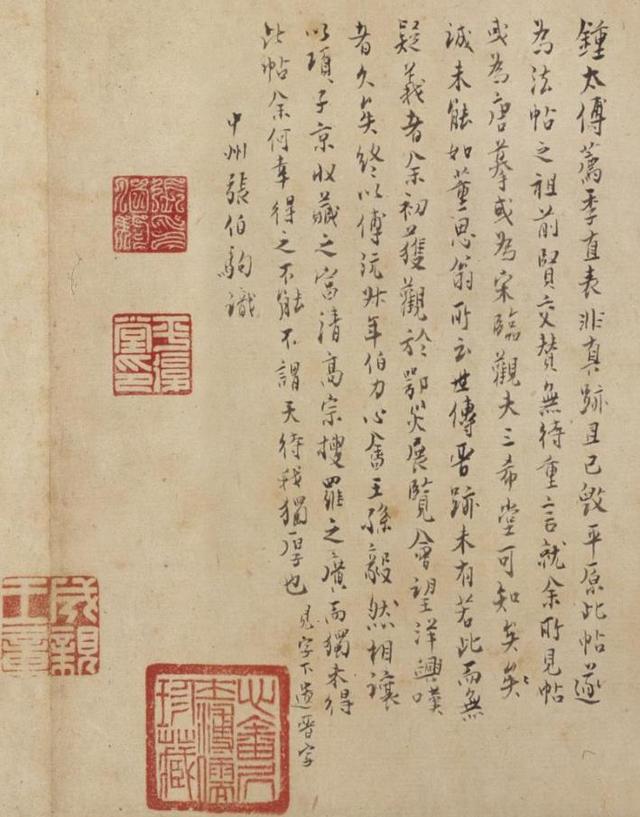 鍾太傅薦季直表非真跡且已毀平原此帖遂
為法帖之祖前賢交贊無待重言就余所見帖
或為唐摹或為宋臨觀夫三希堂可知矣矣
誠未能如董思翁所云世傳晋跡未有若此而無
疑義者余初獲觀於鄂災展覽會望洋興嘆
者久矣終以傅沅叔年伯力心畬王孫毅然相讓
以項子京收藏之富清高宗搜羅之廣而獨未得
此帖余何幸得之不能不謂天待我獨厚也 見字下遺晋字
中州張伯駒識
平復堂印
成親王章
溥儒珍藏